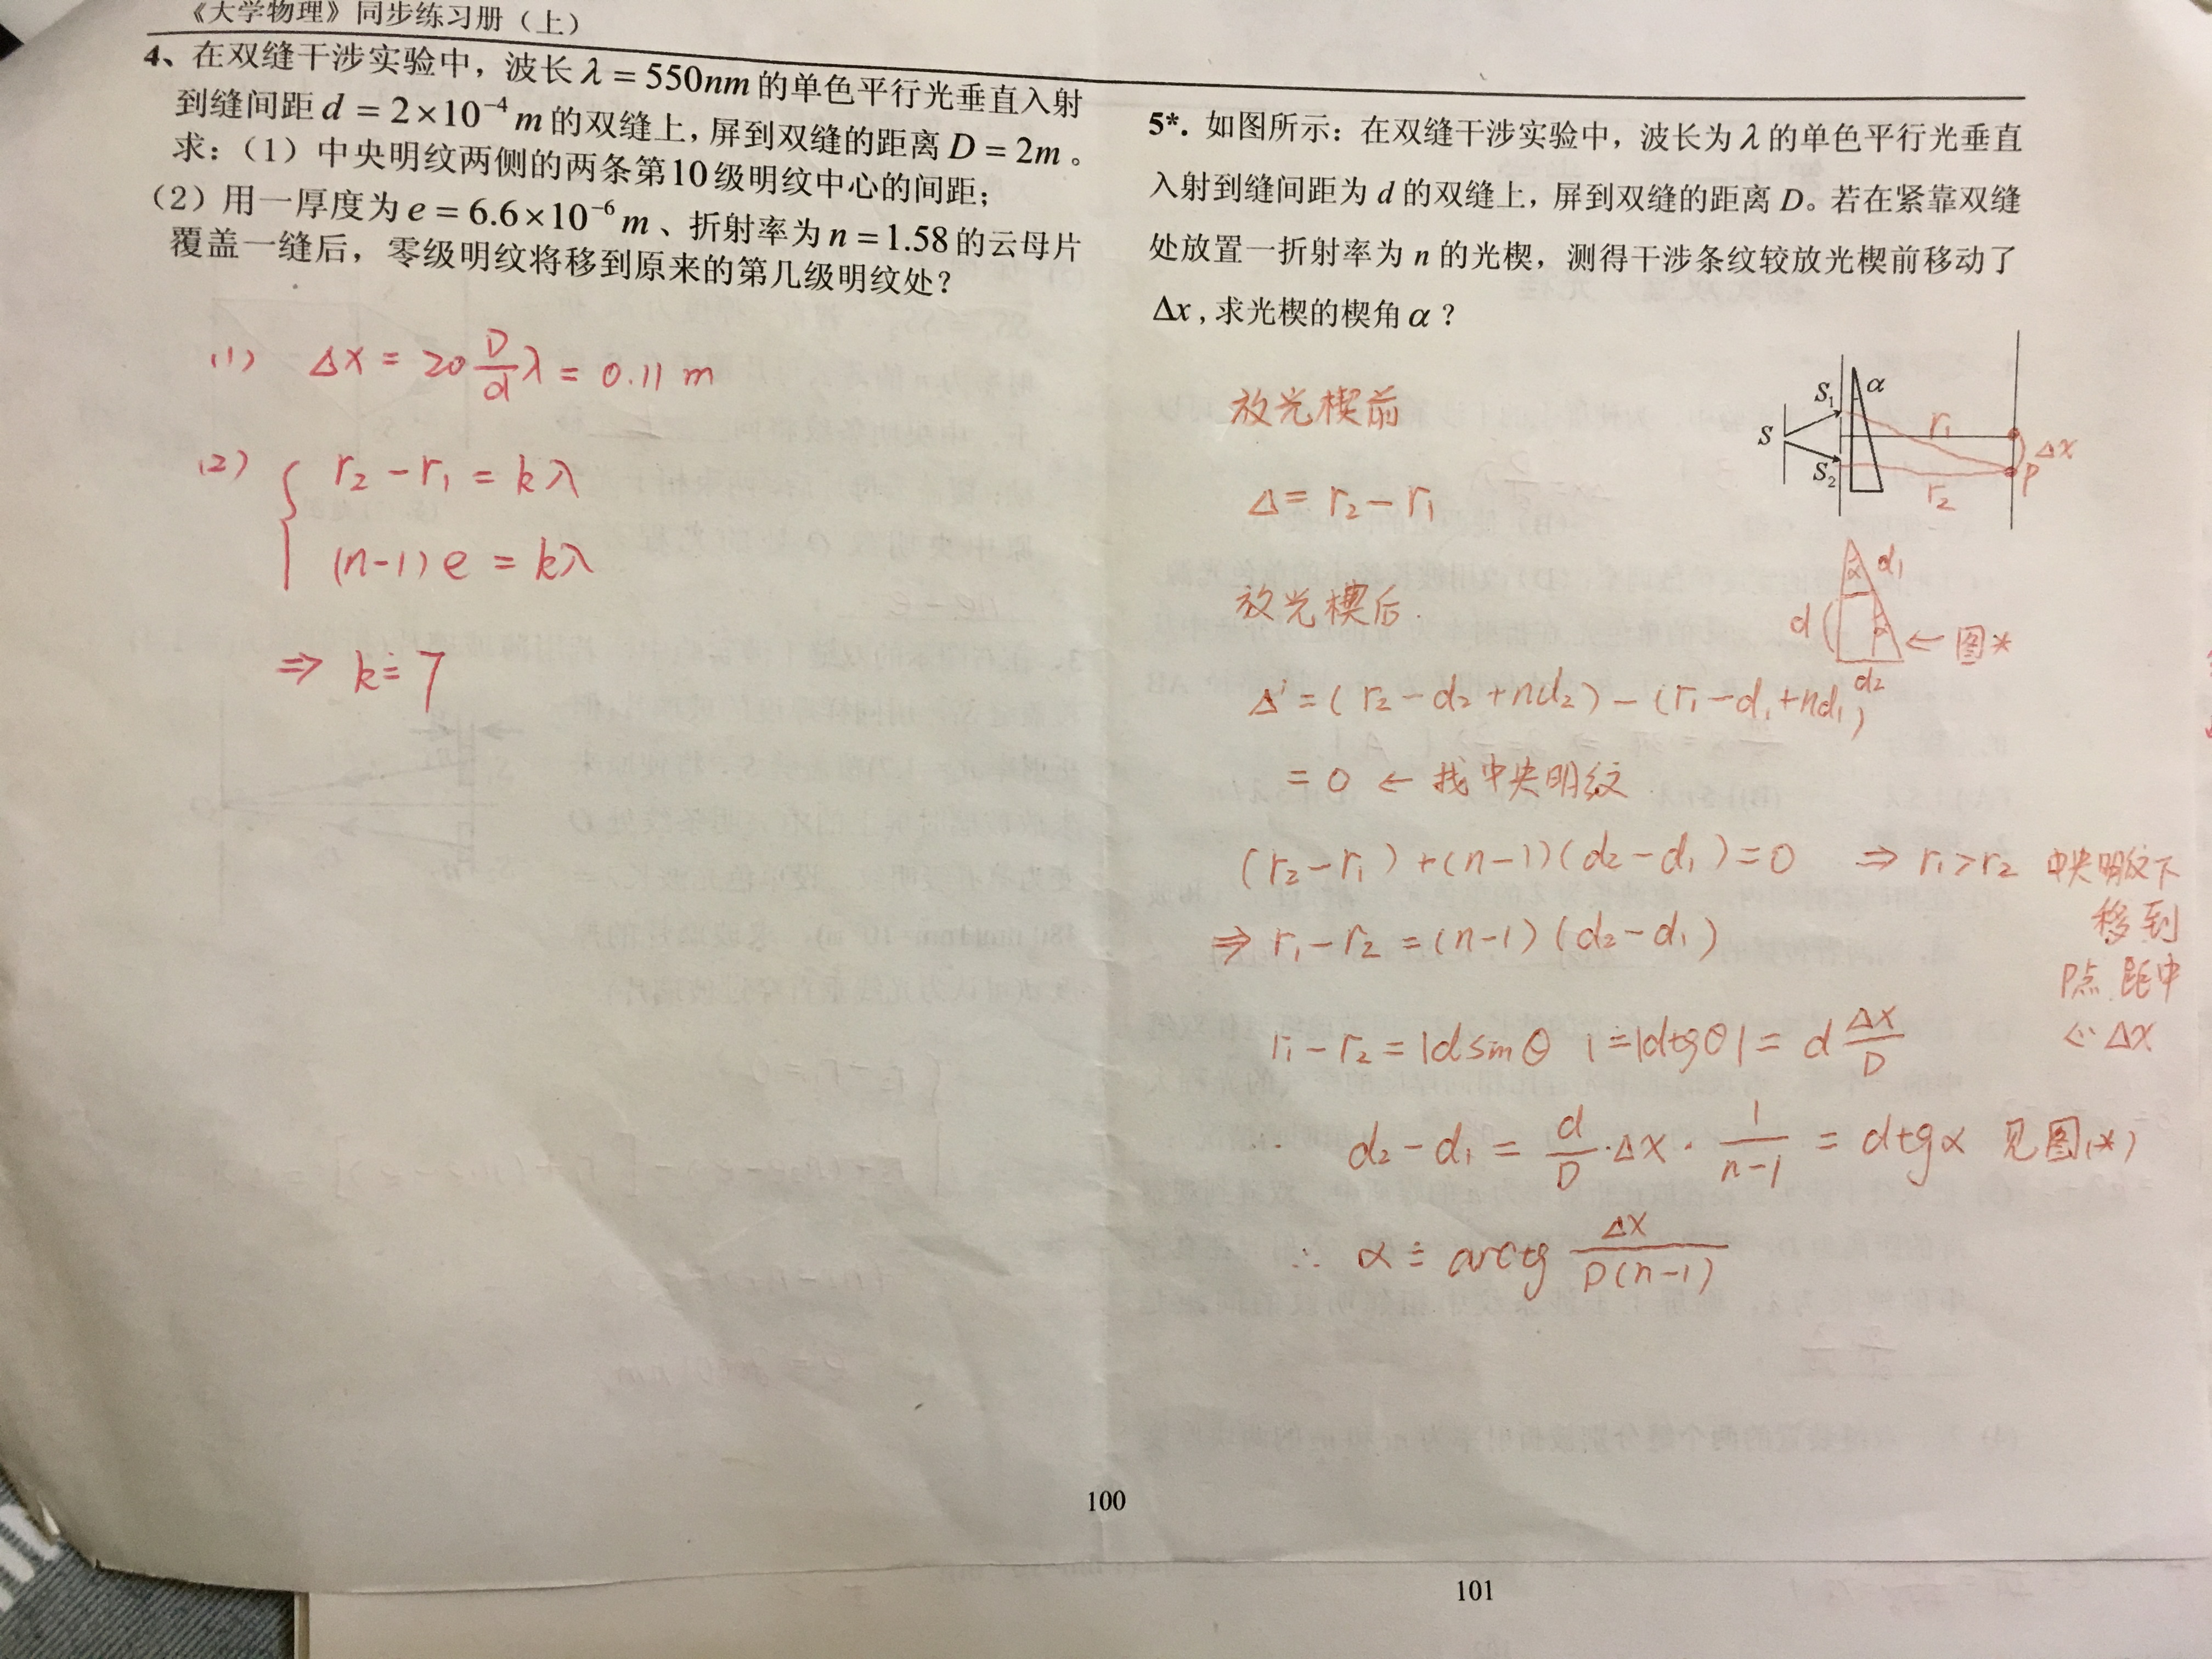 《大学物理》同步练习册（上）
4、在双缝干涉实验中，波长 λ = 550nm 的单色平行光垂直入射
到缝间距 d = 2×10⁻⁴ m 的双缝上，屏到双缝的距离 D = 2m 。
求：（1）中央明纹两侧的两条第10级明纹中心的间距；
（2）用一厚度为 e = 6.6×10⁻⁶ m 、折射率为 n = 1.58 的云母片
覆盖一缝后，零级明纹将移到原来的第几级明纹处？
(1) Δx = 20 D/d λ = 0.11 m
(2) { r₂ - r₁ = kλ
(n-1) e = kλ
⇒ k ≐ 7
100
5*. 如图所示：在双缝干涉实验中，波长为 λ 的单色平行光垂直
入射到缝间距为 d 的双缝上，屏到双缝的距离 D。若在紧靠双缝
处放置一折射率为 n 的光楔，测得干涉条纹较放光楔前移动了
Δx，求光楔的楔角 α ？
S S₁ S₂ α r₁ r₂ Δx P
放光楔前
Δ = r₂ - r₁
α d₁
d α ← 图*
d₂
放光楔后.
Δ' = ( r₂ - d₂ + nd₂ ) - ( r₁ - d₁ + nd₁ )
= 0 ← 找中央明纹
(r₂ - r₁) + (n-1)(d₂ - d₁) = 0 ⇒ r₁ > r₂ 中央明纹下
移到
P点 距中
⇒ r₁ - r₂ = (n-1)(d₂ - d₁)
Δx
r₁ - r₂ = |d sinθ| = |d tgθ| = d Δx/D
∴ d₂ - d₁ = d/D · Δx · 1/(n-1) = d tgα 见图(*)
∴ α ≐ arctg Δx/(D(n-1))
101